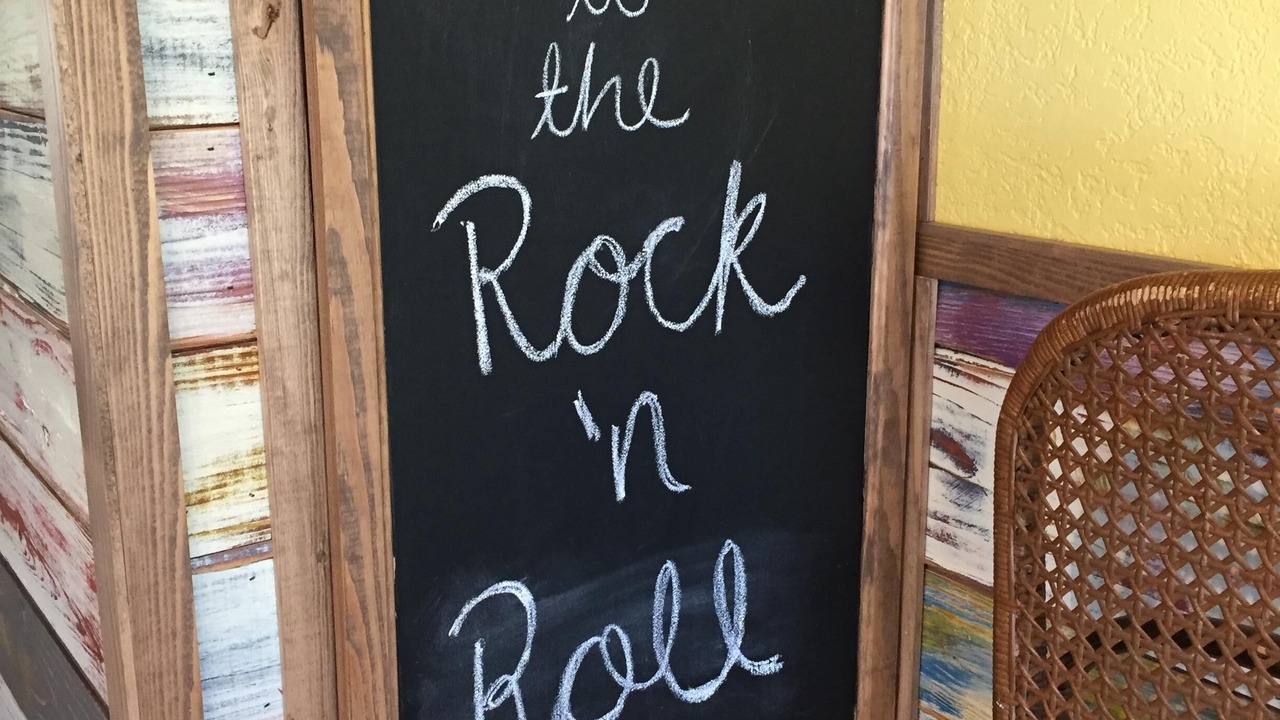 the
Rock
'n
Roll